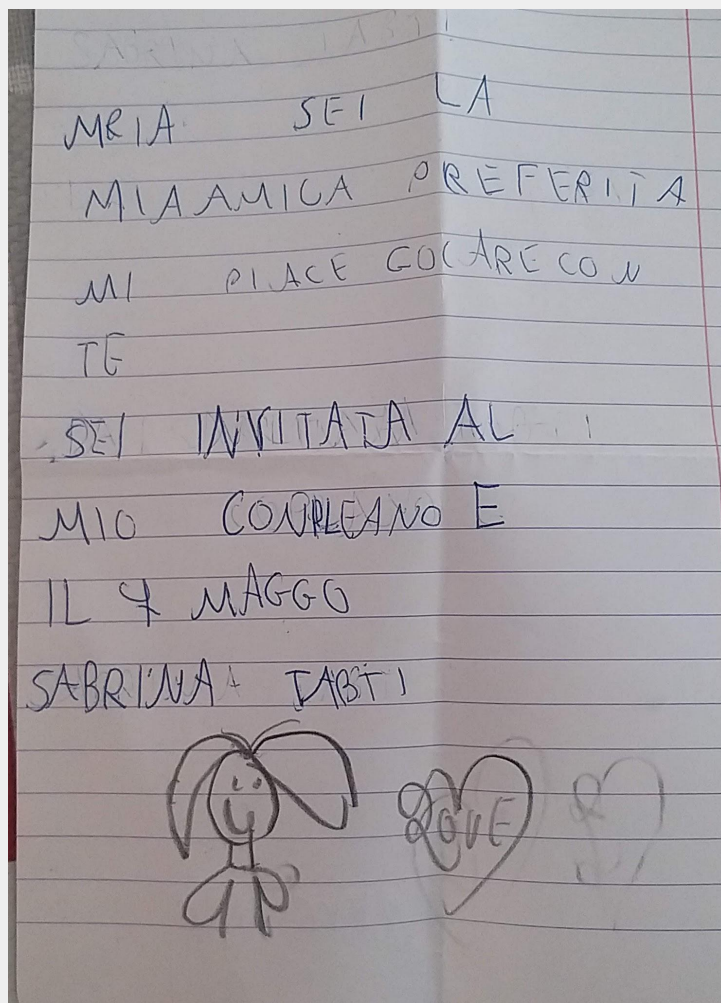 MRIA SEI LA
MIA AMICA PREFERITA
MI PIACE GOCARE CON
TE
SEI INVITATA AL
MIO CONPLEANO E
IL 7 MAGGO
SABRINA TABTI
LOVE